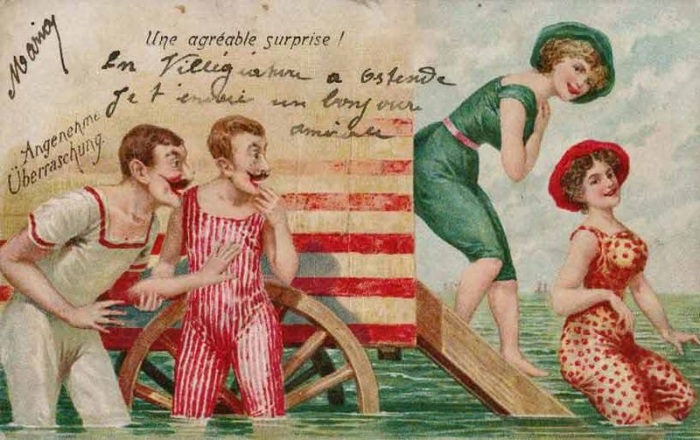 Maria
Une agréable surprise !
En Villégiature a Ostende
Je t'envoie un bonjour
amical
Angenehme
Überraschung.